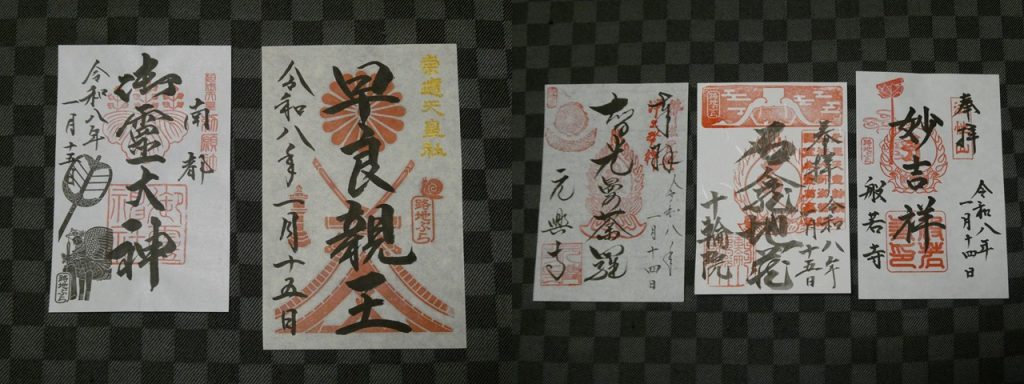 南都
御靈大神
令和八年
一月十五日
路地ぶら
崇道天皇社
早良親王
令和八年一月十五日
路地ぶら
奉拝
令和八年
一月十四日
智光曼荼羅
元興寺
奉拝
令和八年
一月十五日
石龕地蔵
十輪院
奉拝
令和八年
一月十四日
妙吉祥
般若寺